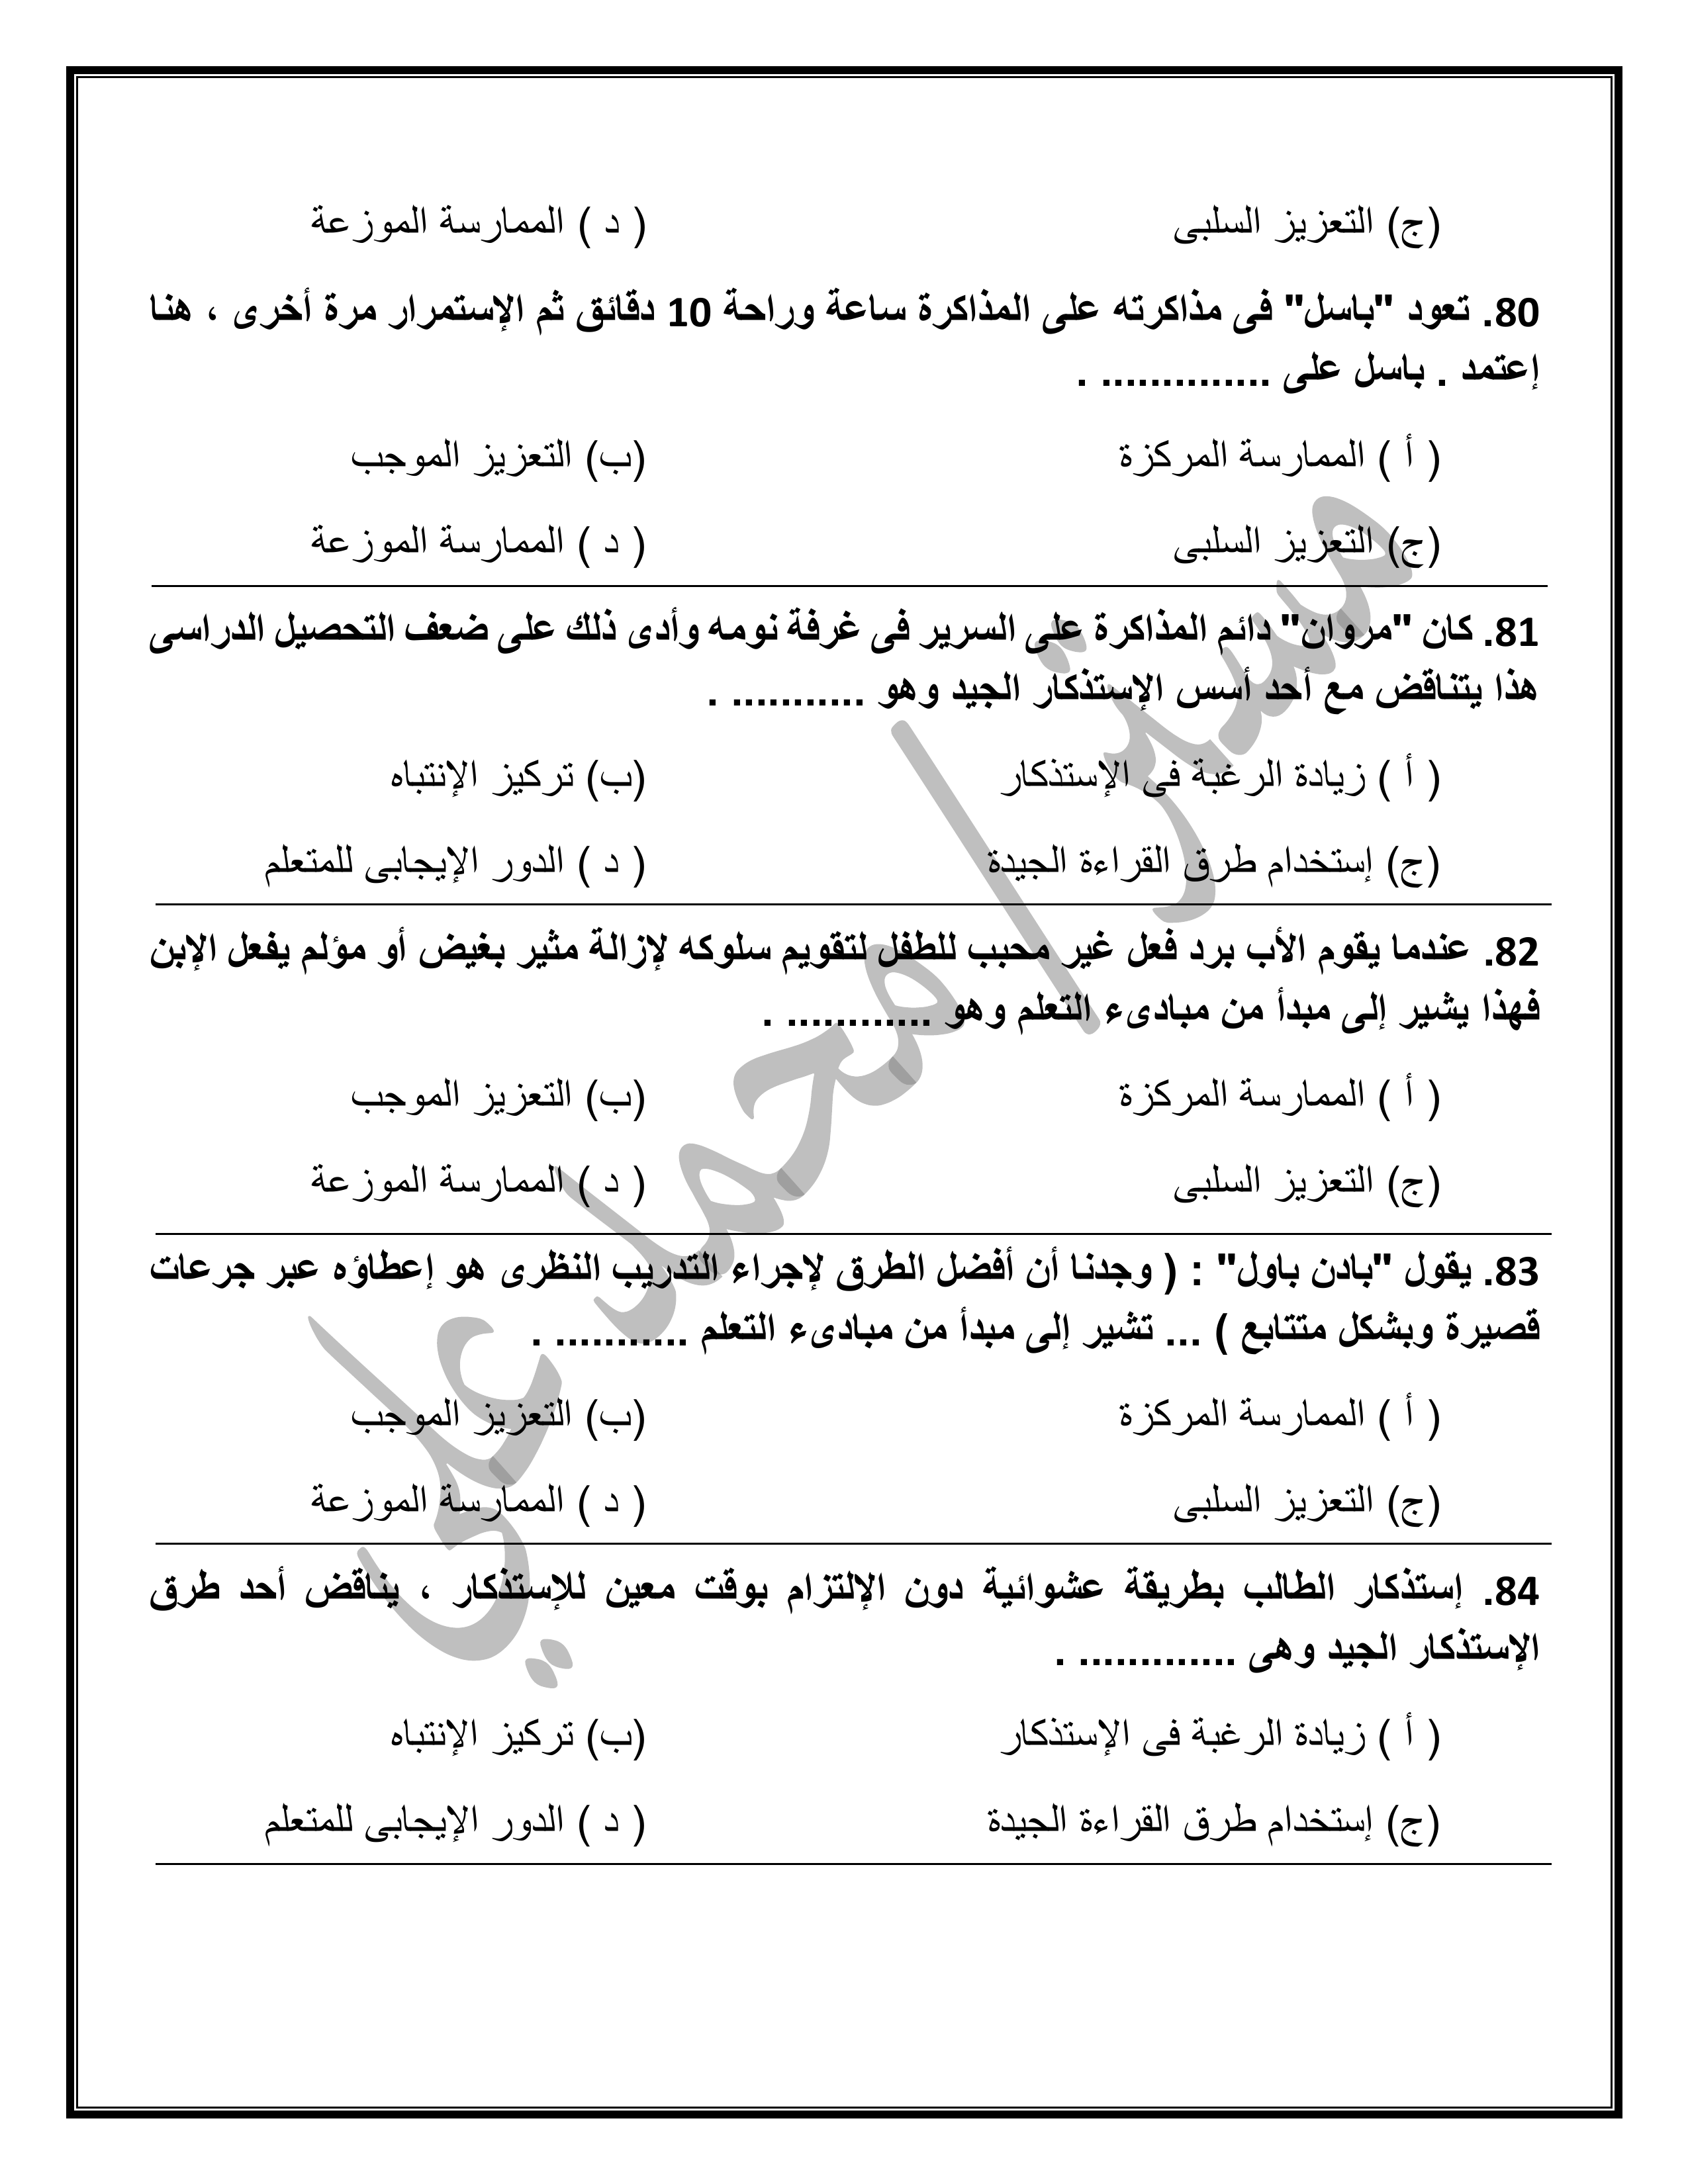 (ج) التعزيز السلبى ( د ) الممارسة الموزعة
80. تعود "باسل" فى مذاكرته على المذاكرة ساعة وراحة 10 دقائق ثم الإستمرار مرة أخرى ، هنا
إعتمد . باسل على .............. .
( أ ) الممارسة المركزة (ب) التعزيز الموجب
(ج) التعزيز السلبى ( د ) الممارسة الموزعة
81. كان "مروان" دائم المذاكرة على السرير فى غرفة نومه وأدى ذلك على ضعف التحصيل الدراسى
هذا يتناقض مع أحد أسس الإستذكار الجيد وهو ........... .
( أ ) زيادة الرغبة فى الإستذكار (ب) تركيز الإنتباه
(ج) إستخدام طرق القراءة الجيدة ( د ) الدور الإيجابى للمتعلم
82. عندما يقوم الأب برد فعل غير محبب للطفل لتقويم سلوكه لإزالة مثير بغيض أو مؤلم يفعل الإبن
فهذا يشير إلى مبدأ من مبادىء التعلم وهو ............ .
( أ ) الممارسة المركزة (ب) التعزيز الموجب
(ج) التعزيز السلبى ( د ) الممارسة الموزعة
83. يقول "بادن باول" : ( وجدنا أن أفضل الطرق لإجراء التدريب النظرى هو إعطاؤه عبر جرعات
قصيرة وبشكل متتابع ) ... تشير إلى مبدأ من مبادىء التعلم ........... .
( أ ) الممارسة المركزة (ب) التعزيز الموجب
(ج) التعزيز السلبى ( د ) الممارسة الموزعة
84. إستذكار الطالب بطريقة عشوائية دون الإلتزام بوقت معين للإستذكار ، يناقض أحد طرق
الإستذكار الجيد وهى ............. .
( أ ) زيادة الرغبة فى الإستذكار (ب) تركيز الإنتباه
(ج) إستخدام طرق القراءة الجيدة ( د ) الدور الإيجابى للمتعلم
مستر/محمد علي